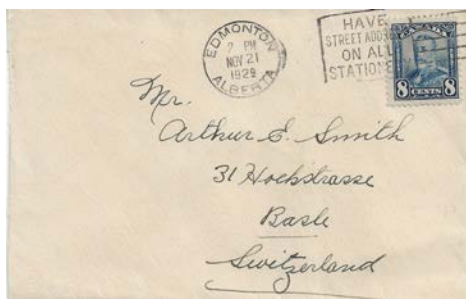 EDMONTON
2 PM
NOV 21
1929
ALBERTA
HAVE
STREET ADDRESS
ON ALL
CANADA
8 CENTS 8
Mr.
Arthur E. Smith
31 Hochstrasse
Basle
Switzerland